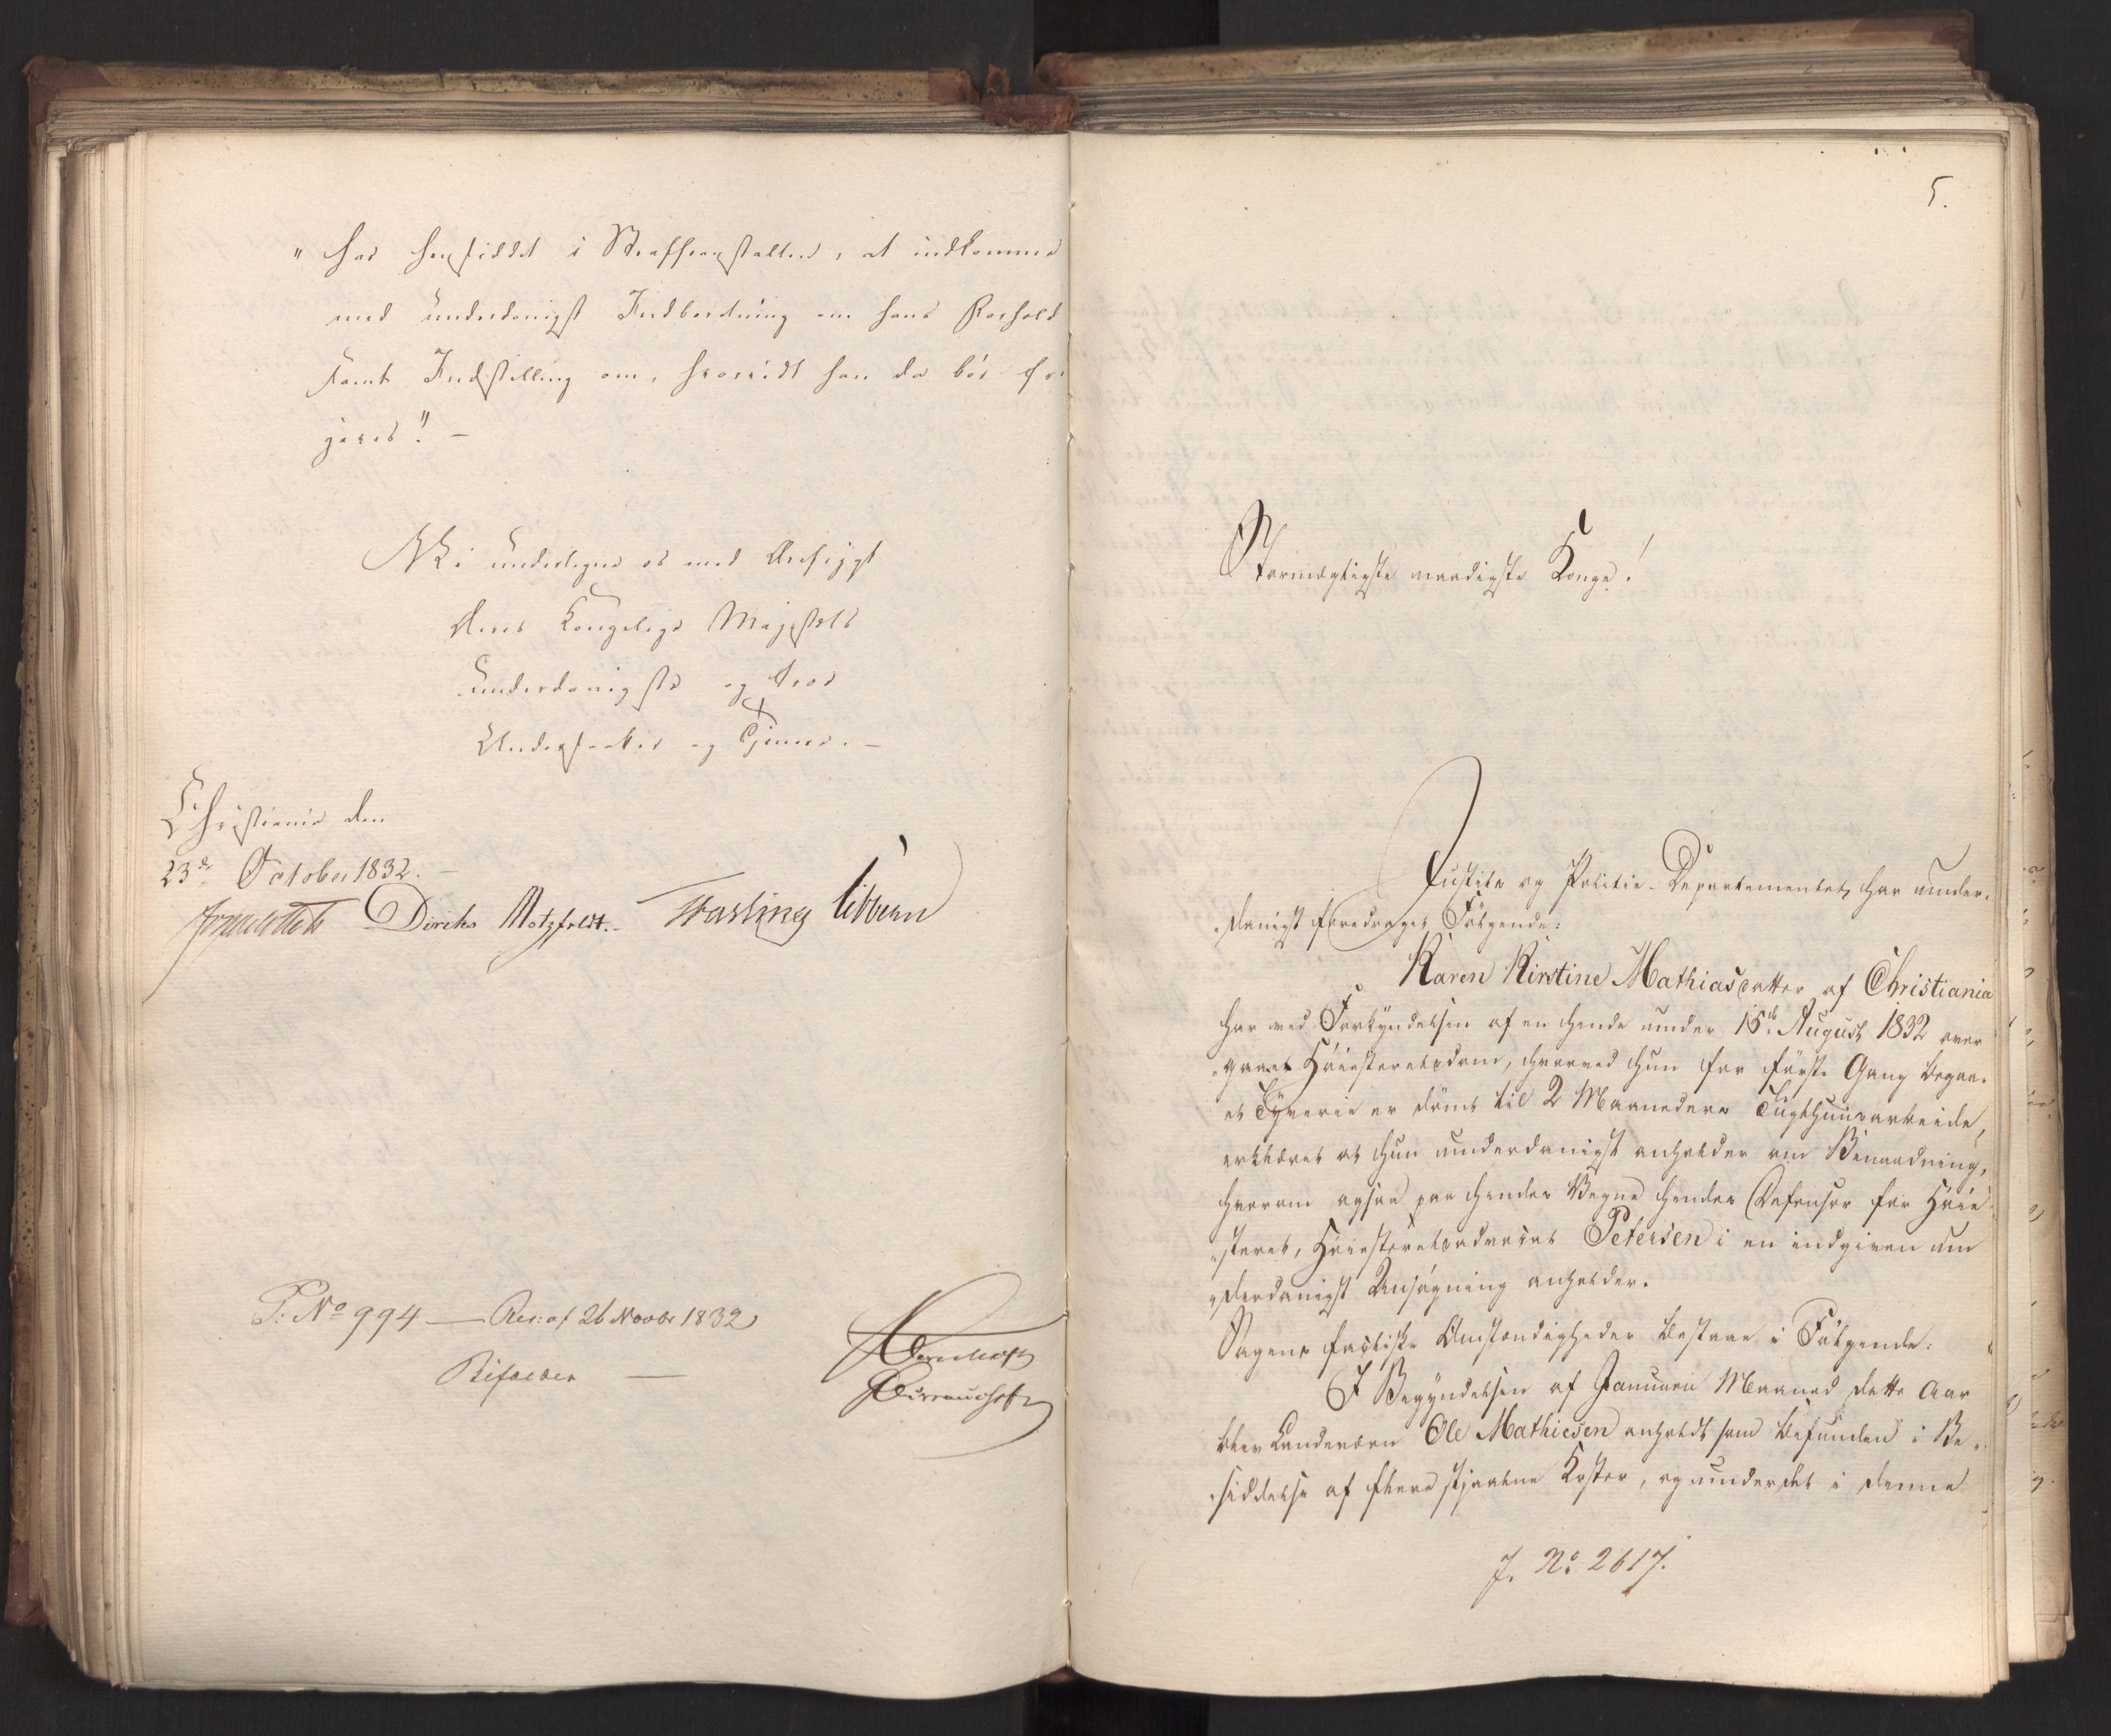 " har hensiddet i Straffeanstalten, at indkomme
med underdanigst Indberetning om hans Forhold
samt Indstilling om, hvorvidt han da bør fri
gives". —
Vi undertegne os med Ærefrygt
Deres Kongelige Majestæts
underdanigste og troe
Undersaatter og Tjenere. —
Christiania den
23de October 1832. —
Diriks Motzfeldt. Fasting Sibbern
P: No 994 — Res: af 26 Novbr 1832
Bifaldes —
5.
Stormægtigste naadigste Konge!
Justits og Politie-Departementet har under-
danigst foredraget Følgende:
Karen Kirstine Mathiasdatter af Christiania
har ved Forkyndelsen af en hende under 15de August 1832 over
gaaet Høiesteretsdom, hvorved hun for første Gang begaa-
et Tyverie er dømt til 2 Maaneders Tugthuusarbeide,
erklæret at hun underdanigst anholder om Benaadning,
hvorom ogsaa paa hendes Vegne hendes Defensor for Høie-
steret, Høiesteretsadvocat Petersen i en indgiven un
derdanigst Ansøgning anholder.
Sagens factiske Omstændigheder bestaae i Følgende:
I Begyndelsen af Januari Maaned dette Aar
blev Landeværn Ole Mathiesen anholdt som befunden i Be-
siddelse af flere stjaalne Koster, og under det i denne
J. No 2617.